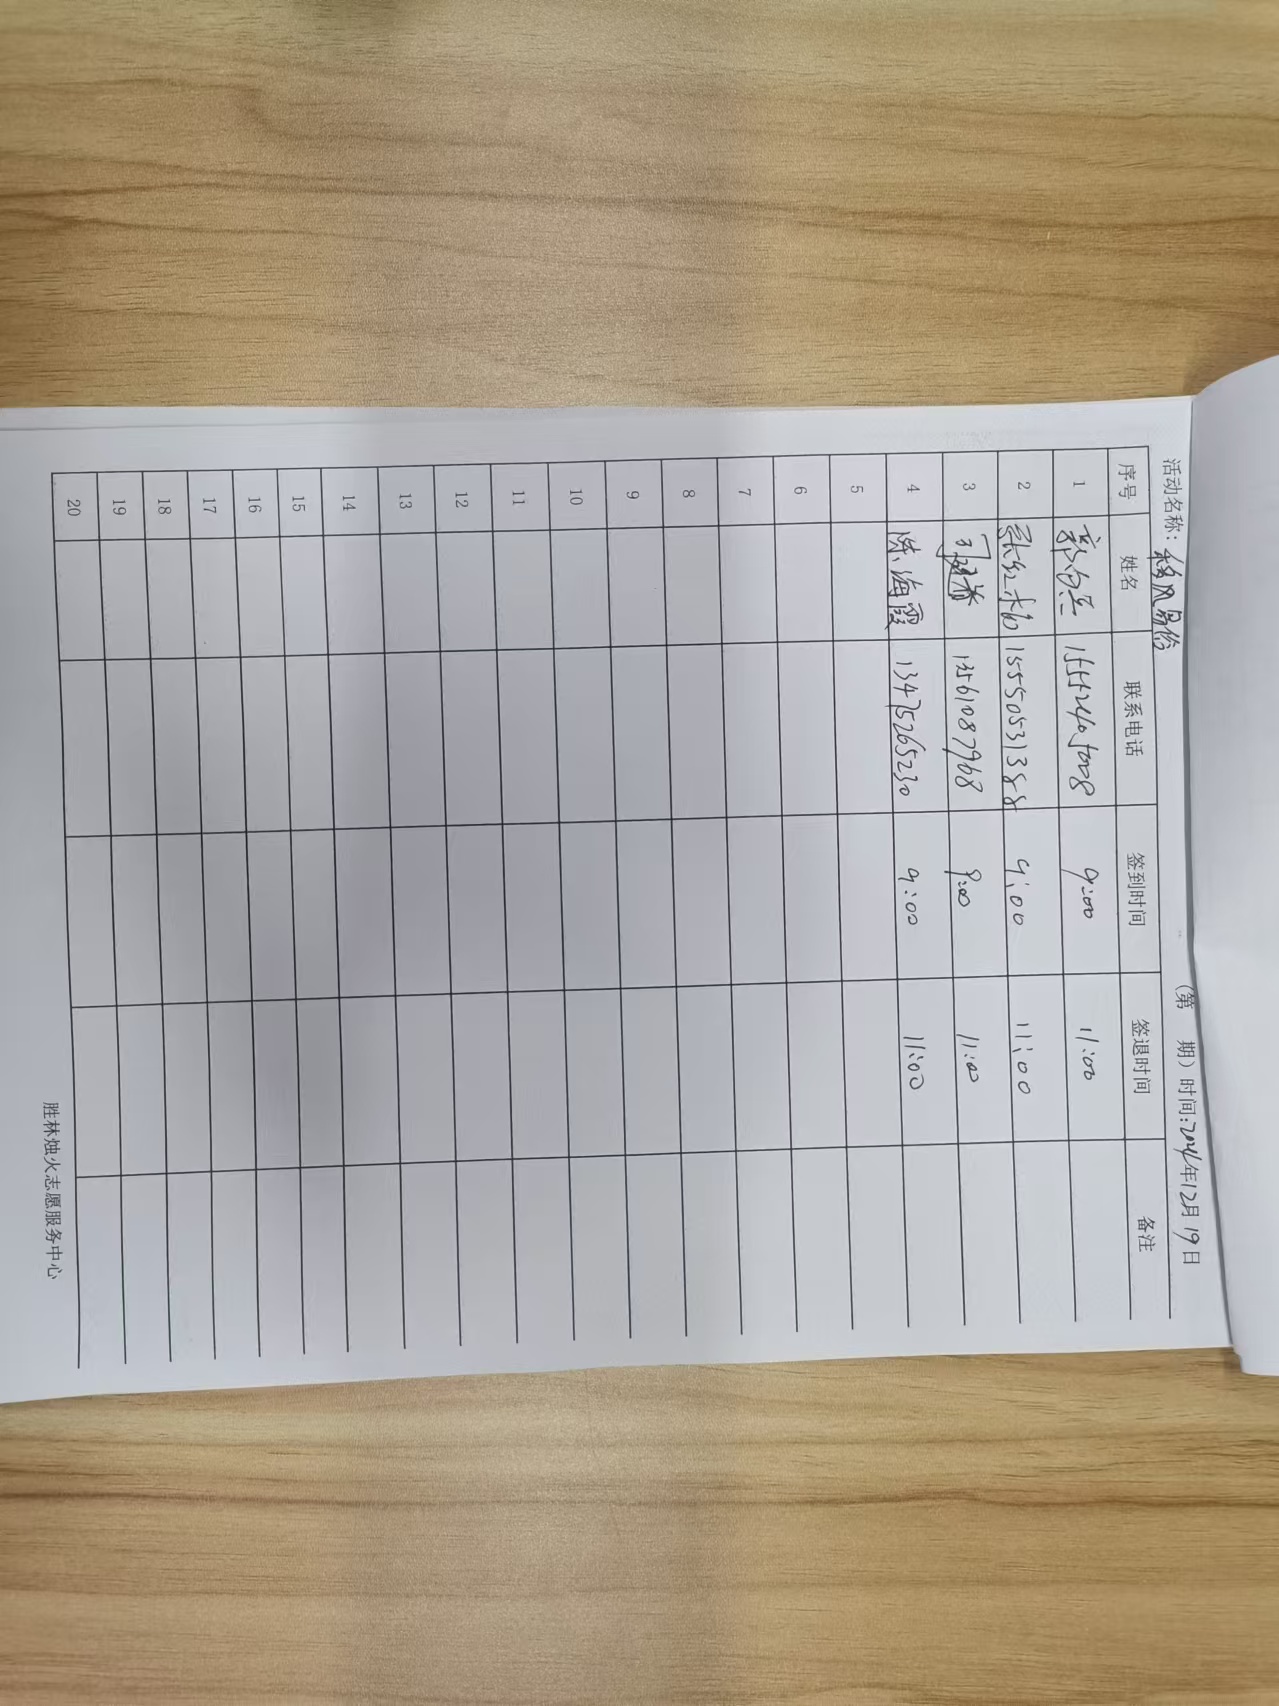 活动名称：移风易俗
（第 期）时间:2024年12月19日
序号 姓名 联系电话 签到时间 签退时间 备注
1 9:00 11:00
2 15550531388 9:00 11:00
3 13561087968 9:00 11:00
4 陈海霞 13475265230 9:00 11:00
5
6
7
8
9
10
11
12
13
14
15
16
17
18
19
20
胜林烛火志愿服务中心